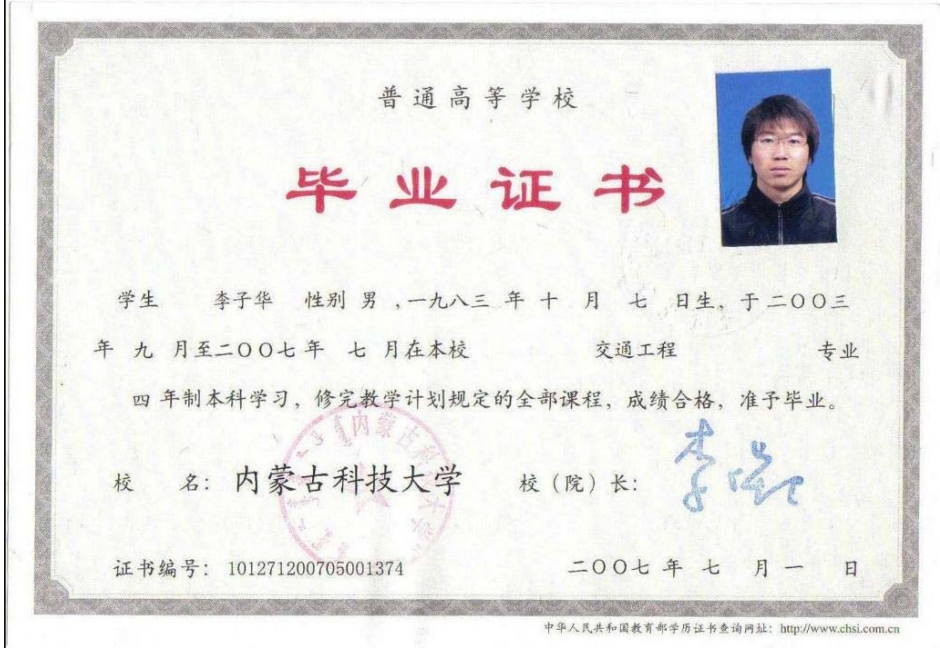 普通高等学校
毕业证书
学生 李子华 性别 男 ,一九八三 年 十 月 七 日生, 于二〇〇三
年 九 月至二〇〇七年 七 月在本校 交通工程 专业
四 年制本科学习, 修完教学计划规定的全部课程, 成绩合格, 准予毕业。
内蒙古科技大学
校 名: 内蒙古科技大学 校(院)长:
证书编号: 101271200705001374 二〇〇七 年 七 月 一 日
中华人民共和国教育部学历证书查询网址: http://www.chsi.com.cn